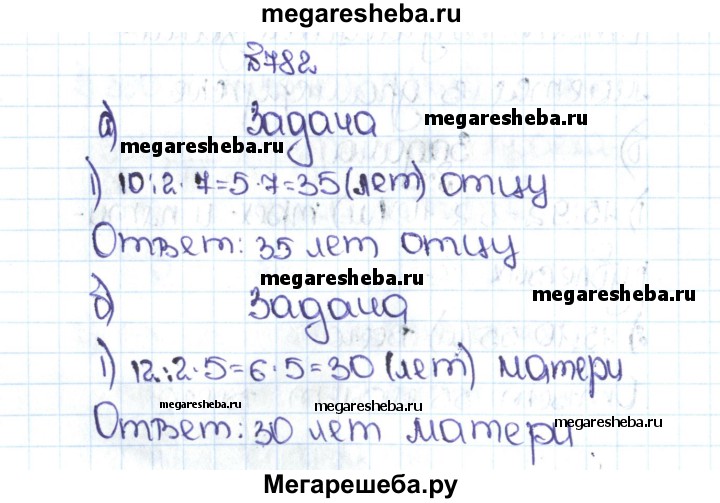 megaresheba.ru
№782
а) Задача
megaresheba.ru
megaresheba.ru
1) 10:2·7=5·7=35(лет) отцу
Ответ: 35 лет отцу
megaresheba.ru
б) Задача
megaresheba.ru
1) 12:2·5=6·5=30(лет) матери
megaresheba.ru
megaresheba.ru
megaresheba.ru
Ответ: 30 лет матери
Мегарешеба.ру